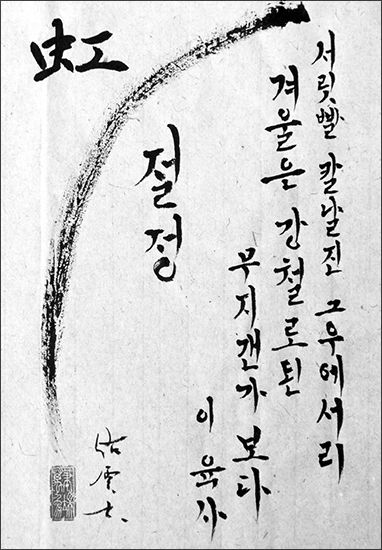 서릿빨 칼날진 그우에서리
겨울은 강철로된
무지갠가 보다
이 육사
절정
虹